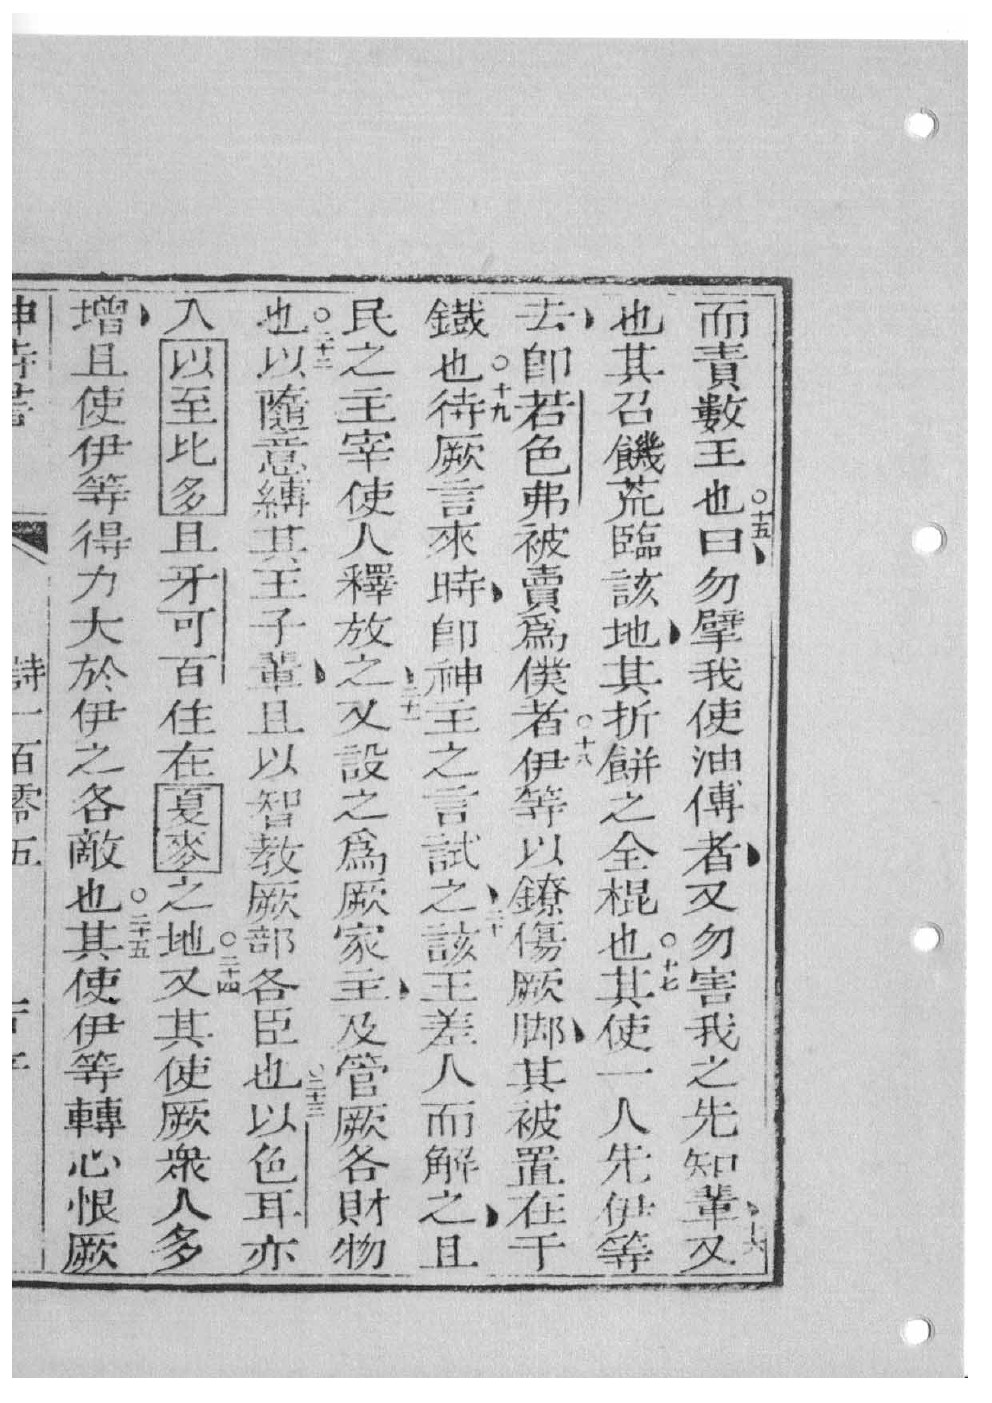 而責數王也○十五曰勿擘我使油傅者又勿害我之先知輩○十六又
也其召饑荒臨該地其折餅之全棍也○十七其使一人先伊等
去卽若色弗被賣爲僕者○十八伊等以鐐傷厥脚其被置在于
鐵也○十九待厥言來時卽神主之言試之○二十該王差人而解之且
民之主宰使人釋放之○二十一又設之爲厥家主及管厥各財物
也○二十二以隨意縛其王子輩且以智教厥部各臣也○二十三以色耳亦
入以至比多且牙可百住在夏麥之地○二十四又其使厥衆人多
增且使伊等得力大於伊之各敵也○二十五其使伊等轉心恨厥
神詩書 詩一百零五